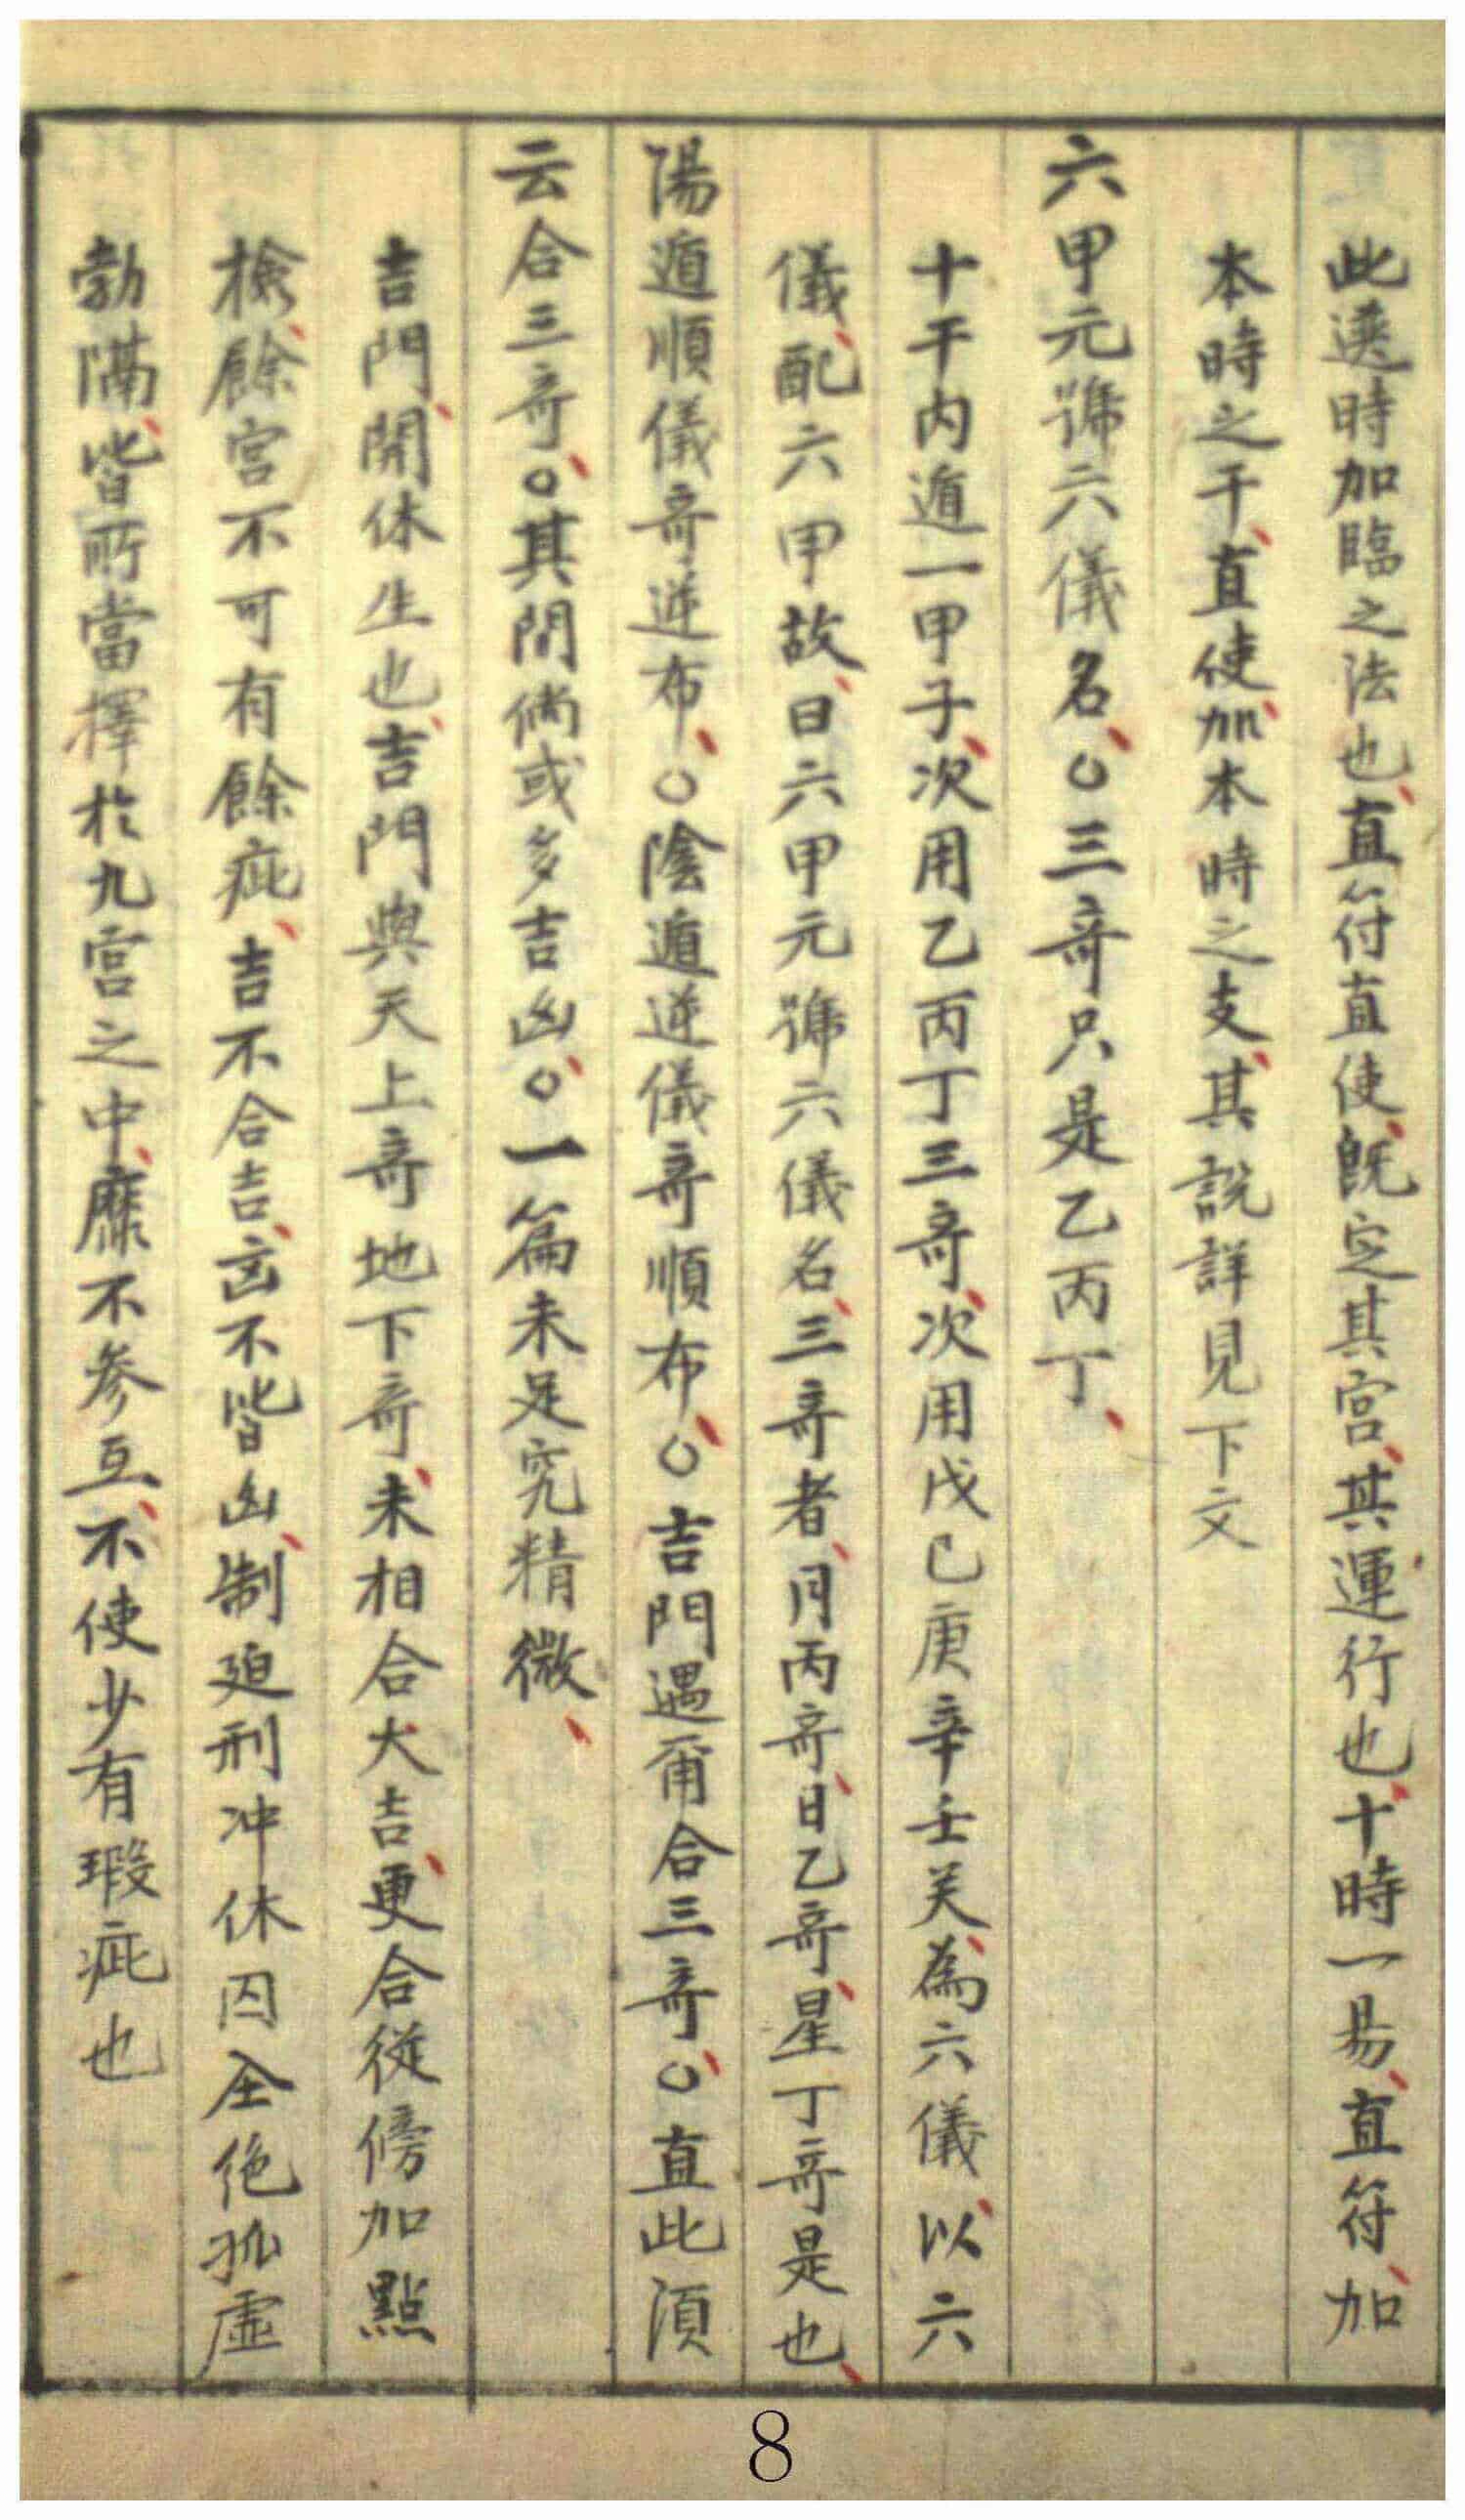 此選時加臨之法也直符直使既定其宮其運行也十時一易直符加
本時之干直使加本時之支其說詳見下文
六甲元號六儀名〇三竒只是乙丙丁
十干内遁一甲子次用乙丙丁三竒次用戊己庚辛壬癸為六儀以六
儀配六甲故曰六甲元號六儀名三竒者月丙竒日乙竒星丁竒是也
陽遁順儀竒逆布〇陰遁逆儀竒順布〇吉門遇甭合三竒〇直此須
云合三竒〇其間倘或多吉凶〇一篇未足究精微
吉門開休生也吉門與天上竒地下竒未相合大吉更合從傍加點
檢餘宮不可有餘疵吉不合吉凶不皆凶制廹刑冲休囚仝絶孤虛
勃隔皆所當擇於九宮之中靡不參互不使少有瑕疵也
8